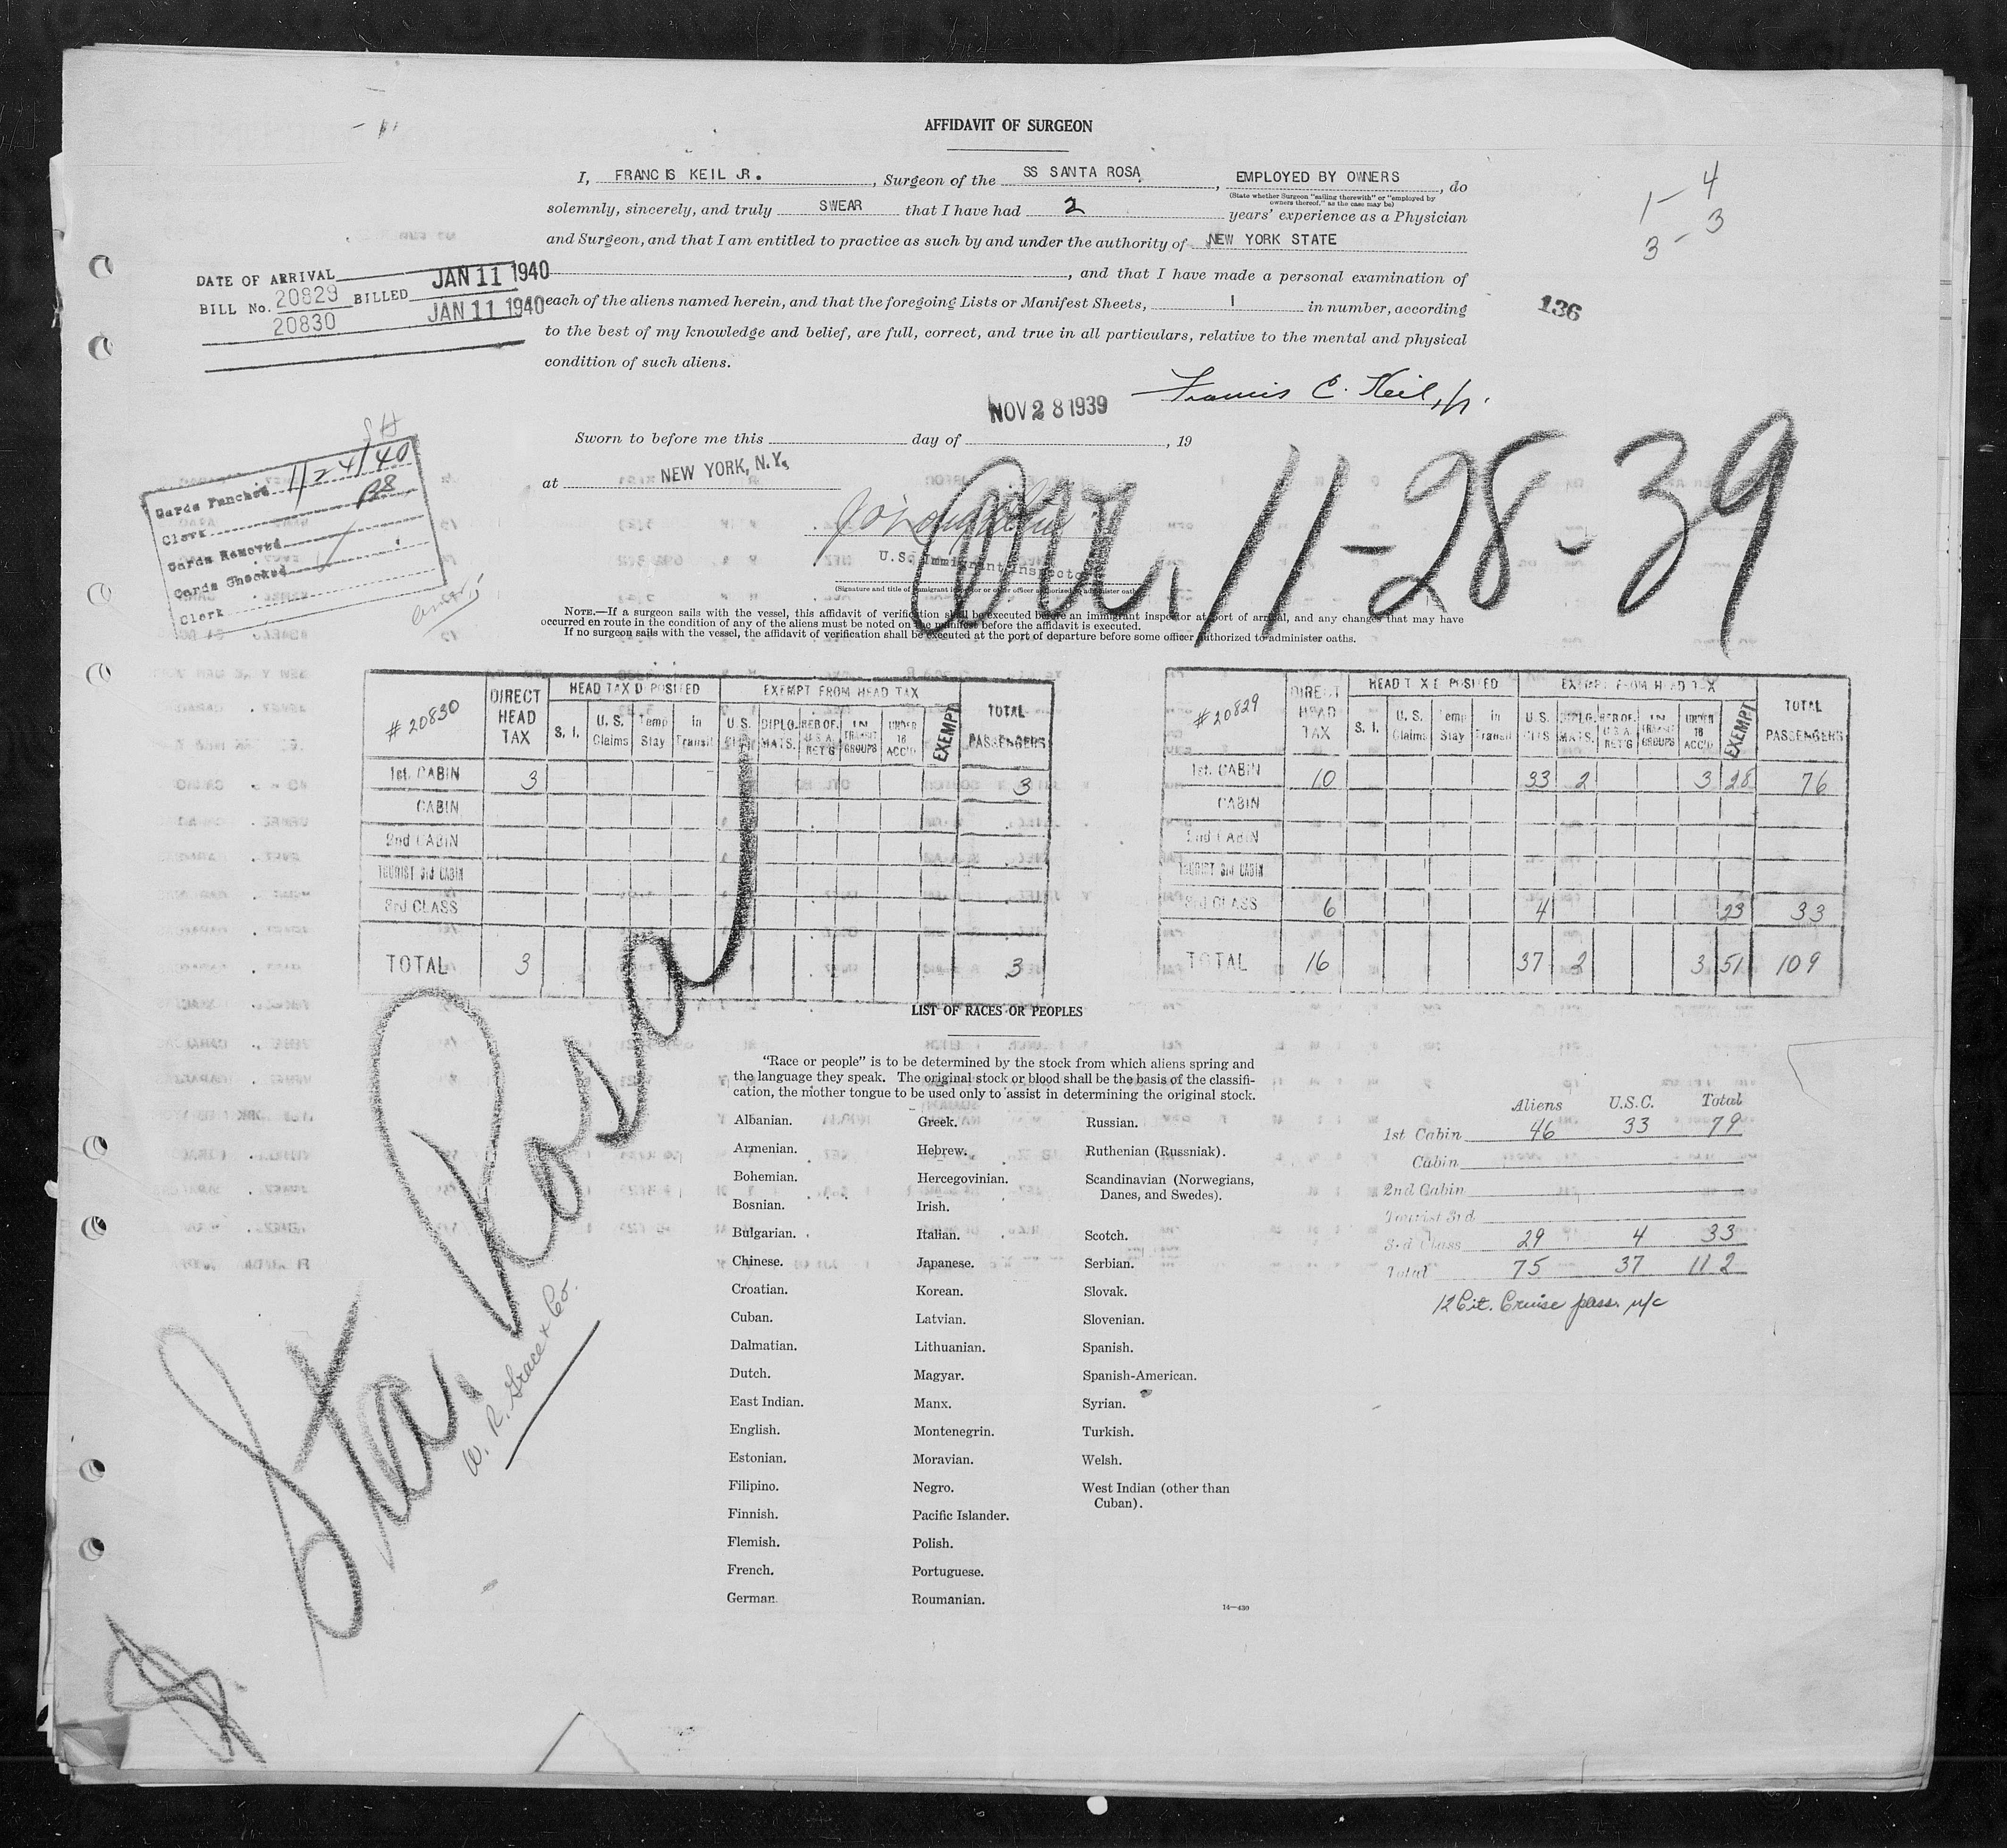 AFFIDAVIT OF SURGEON
I, FRANCIS KEIL JR. , Surgeon of the SS SANTA ROSA , EMPLOYED BY OWNERS , do
(State whether Surgeon "sailing therewith" or "employed by owners thereof," as the case may be)
solemnly, sincerely, and truly SWEAR that I have had 2 years' experience as a Physician
and Surgeon, and that I am entitled to practice as such by and under the authority of NEW YORK STATE
, and that I have made a personal examination of
each of the aliens named herein, and that the foregoing Lists or Manifest Sheets, 1 in number, according
to the best of my knowledge and belief, are full, correct, and true in all particulars, relative to the mental and physical
condition of such aliens.
1 - 4
3 - 3
136
DATE OF ARRIVAL
BILL No. 20829 BILLED JAN 11 1940
20830 JAN 11 1940
Francis C. Keil, Jr.
NOV 28 1939
Sworn to before me this day of , 19
at NEW YORK, N.Y.
U.S. Immigrant Inspector
(Signature and title of immigrant inspector or other officer authorized to administer oaths)
Arr. 11-28-39
Cards Punched 1/24/40
Clerk
Cards Removed
Cards Checked
Clerk
NOTE.—If a surgeon sails with the vessel, this affidavit of verification shall be executed before an immigrant inspector at port of arrival, and any changes that may have
occurred en route in the condition of any of the aliens must be noted on the manifest before the affidavit is executed.
If no surgeon sails with the vessel, the affidavit of verification shall be executed at the port of departure before some officer authorized to administer oaths.
# 20830 DIRECT HEAD TAX HEAD TAX DEPOSITED EXEMPT FROM HEAD TAX TOTAL PASSENGERS
S. I. U. S. Claims Temp Stay in Transit U.S. CITS. DIPLO. MATS. RES OF. U.S.A. RET'G IN TRANSIT GROUPS UNDER 16 ACC'D EXEMPT
1st. CABIN 3 3
CABIN
2nd CABIN
TOURIST 3rd CABIN
3rd CLASS
TOTAL 3 3
# 20829 DIRECT HEAD TAX HEAD TAX DEPOSITED EXEMPT FROM HEAD TAX TOTAL PASSENGERS
S. I. U. S. Claims Temp Stay in Transit U.S. CITS DIPLO. MATS. RES OF. U.S.A. RET'G IN TRANSIT GROUPS UNDER 16 ACC'D EXEMPT
1st. CABIN 10 33 2 3 28 76
CABIN
2nd CABIN
TOURIST 3rd CABIN
3rd CLASS 6 4 23 33
TOTAL 16 37 2 3 51 109
Sta. Rosa
W. R. Grace & Co.
LIST OF RACES OR PEOPLES
"Race or people" is to be determined by the stock from which aliens spring and
the language they speak. The original stock or blood shall be the basis of the classifi-
cation, the mother tongue to be used only to assist in determining the original stock.
Albanian.
Armenian.
Bohemian.
Bosnian.
Bulgarian.
Chinese.
Croatian.
Cuban.
Dalmatian.
Dutch.
East Indian.
English.
Estonian.
Filipino.
Finnish.
Flemish.
French.
German.
Greek.
Hebrew.
Hercegovinian.
Irish.
Italian.
Japanese.
Korean.
Latvian.
Lithuanian.
Magyar.
Manx.
Montenegrin.
Moravian.
Negro.
Pacific Islander.
Polish.
Portuguese.
Roumanian.
Russian.
Ruthenian (Russniak).
Scandinavian (Norwegians,
Danes, and Swedes).
Scotch.
Serbian.
Slovak.
Slovenian.
Spanish.
Spanish-American.
Syrian.
Turkish.
Welsh.
West Indian (other than
Cuban).
14—430
Aliens U.S.C. Total
1st Cabin 46 33 79
Cabin
2nd Cabin
Tourist 3rd
3rd Class 29 4 33
Total 75 37 112
12 Cit. Cruise pass. n/c